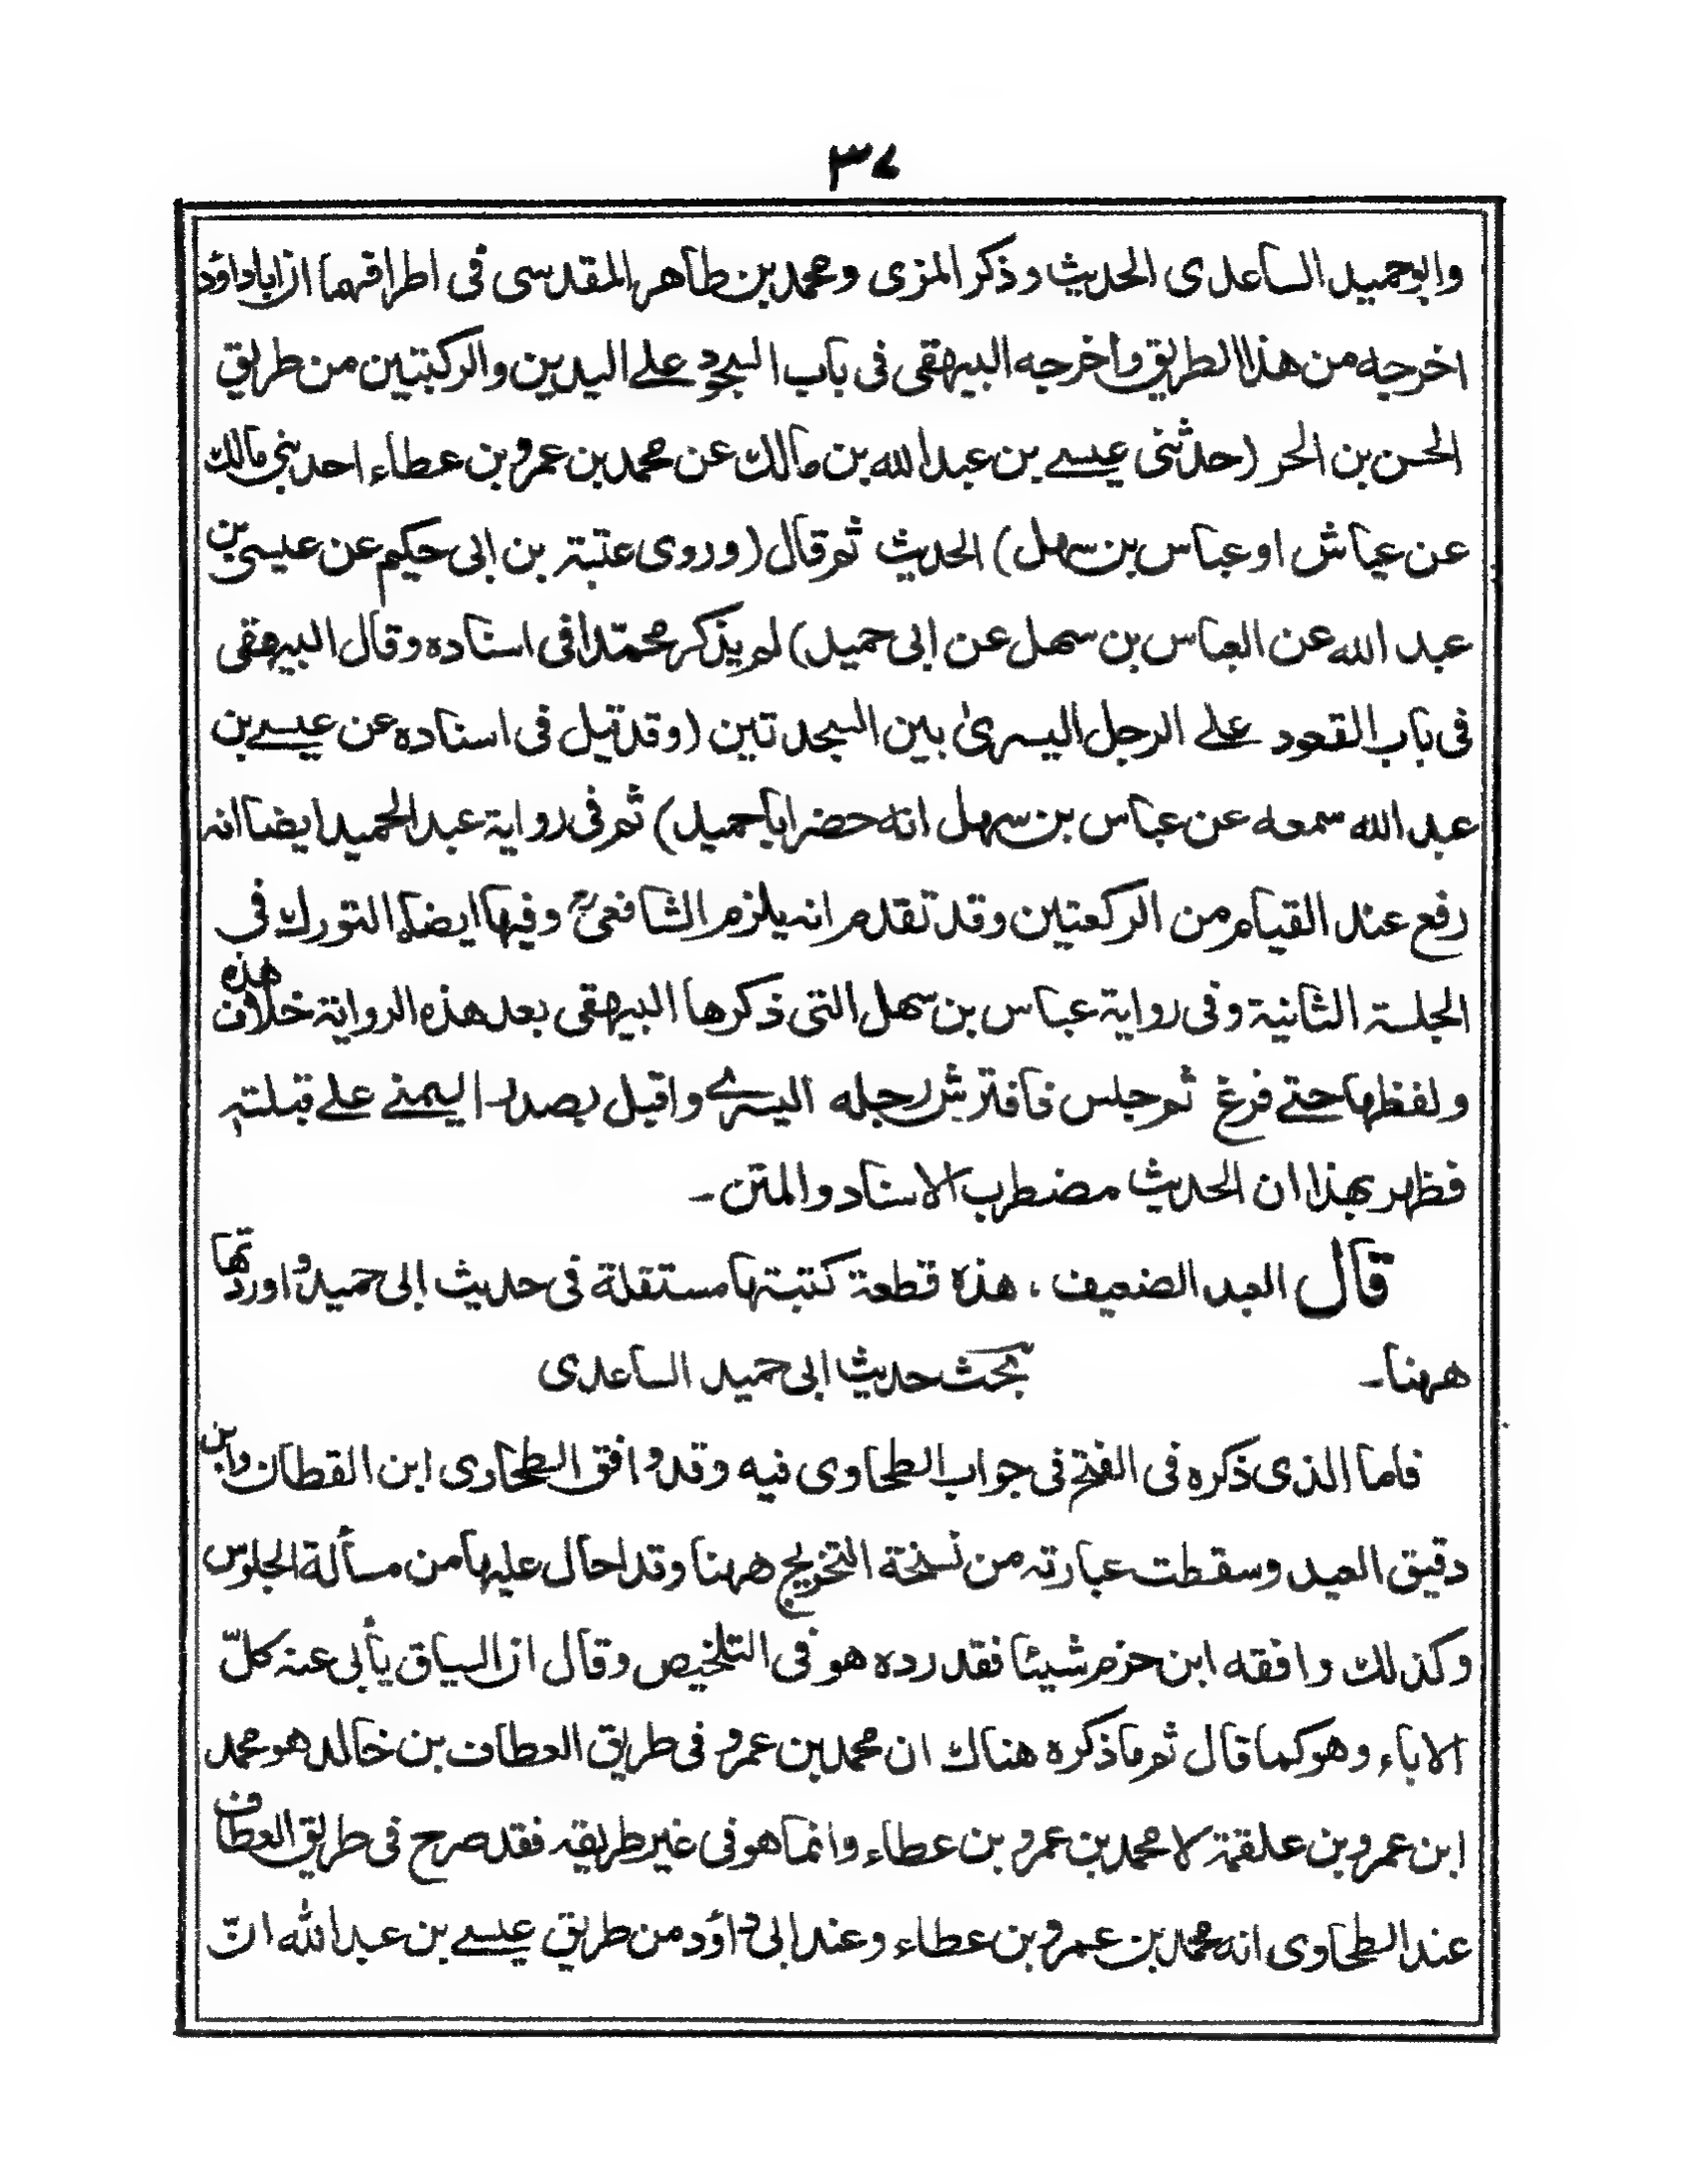 ٣٧
وابوحميد الساعدى الحديث وذكر المزى ومحمد بن طاهر المقدسى فى اطرافهما ان اباداؤد
اخرجه من هذا الطريق واخرجه البيهقى فى باب السجود علے اليدين والركبتين من طريق
الحسن بن الحر (حدثنى عيسے بن عبد الله بن مالك عن محمد بن عمرو بن عطاء احد بنى مالك
عن عياش او عباس بن سهل) الحديث ثم قال (وروى عتبة بن ابى حكيم عن عيسى بن
عبد الله عن العباس بن سهل عن ابى حميد) لم يذكر محمّدا فى اسناده وقال البيهقى
فى باب القعود علے الرجل اليسرىٰ بين السجدتين (وقد قيل فى اسناده عن عيسے بن
عبد الله سمعه عن عباس بن سهل انه حضر ابا حميد) ثم فى رواية عبد الحميد ايضا انه
رفع عند القيام من الركعتين وقد تقدم انه يلزم الشافعىؒ وفيها ايضا التورك فى
الجلسة الثانية وفى رواية عباس بن سهل التى ذكرها البيهقى بعد هذه الرواية خلاف هذه
ولفظها حتے فرغ ثم جلس فافترش رجله اليسرے واقبل بصدر اليمنے علے قبلته
فظهر بهذا ان الحديث مضطرب الاسناد والمتن۔
قال العبد الضعيف، هذه قطعة كتبتها مستقلة فى حديث ابى حميد واوردتها
ههنا۔ بحث حديث ابى حميد الساعدى
فاما الذى ذكره فى الفتح فى جواب الطحاوى فيه وقد وافق الطحاوى ابن القطان وابن
دقيق العيد وسقطت عبارته من نسخة التخريج ههنا وقد احال عليها من مسألة الجلوس
وكذلك وافقه ابن حزم شيئا فقد رده هو فى التلخيص وقال ان السياق يأبى عنه كلّ
الاباء وهو كما قال ثم ما ذكره هناك ان محمد بن عمرو فى طريق العطاف بن خالد هو محمد
ابن عمرو بن علقمة لا محمد بن عمرو بن عطاء وانما هو فى غير طريقه فقد صرح فى طريق العطاف
عند الطحاوى انه محمد بن عمرو بن عطاء وعند ابى داؤد من طريق عيسے بن عبد الله انّ